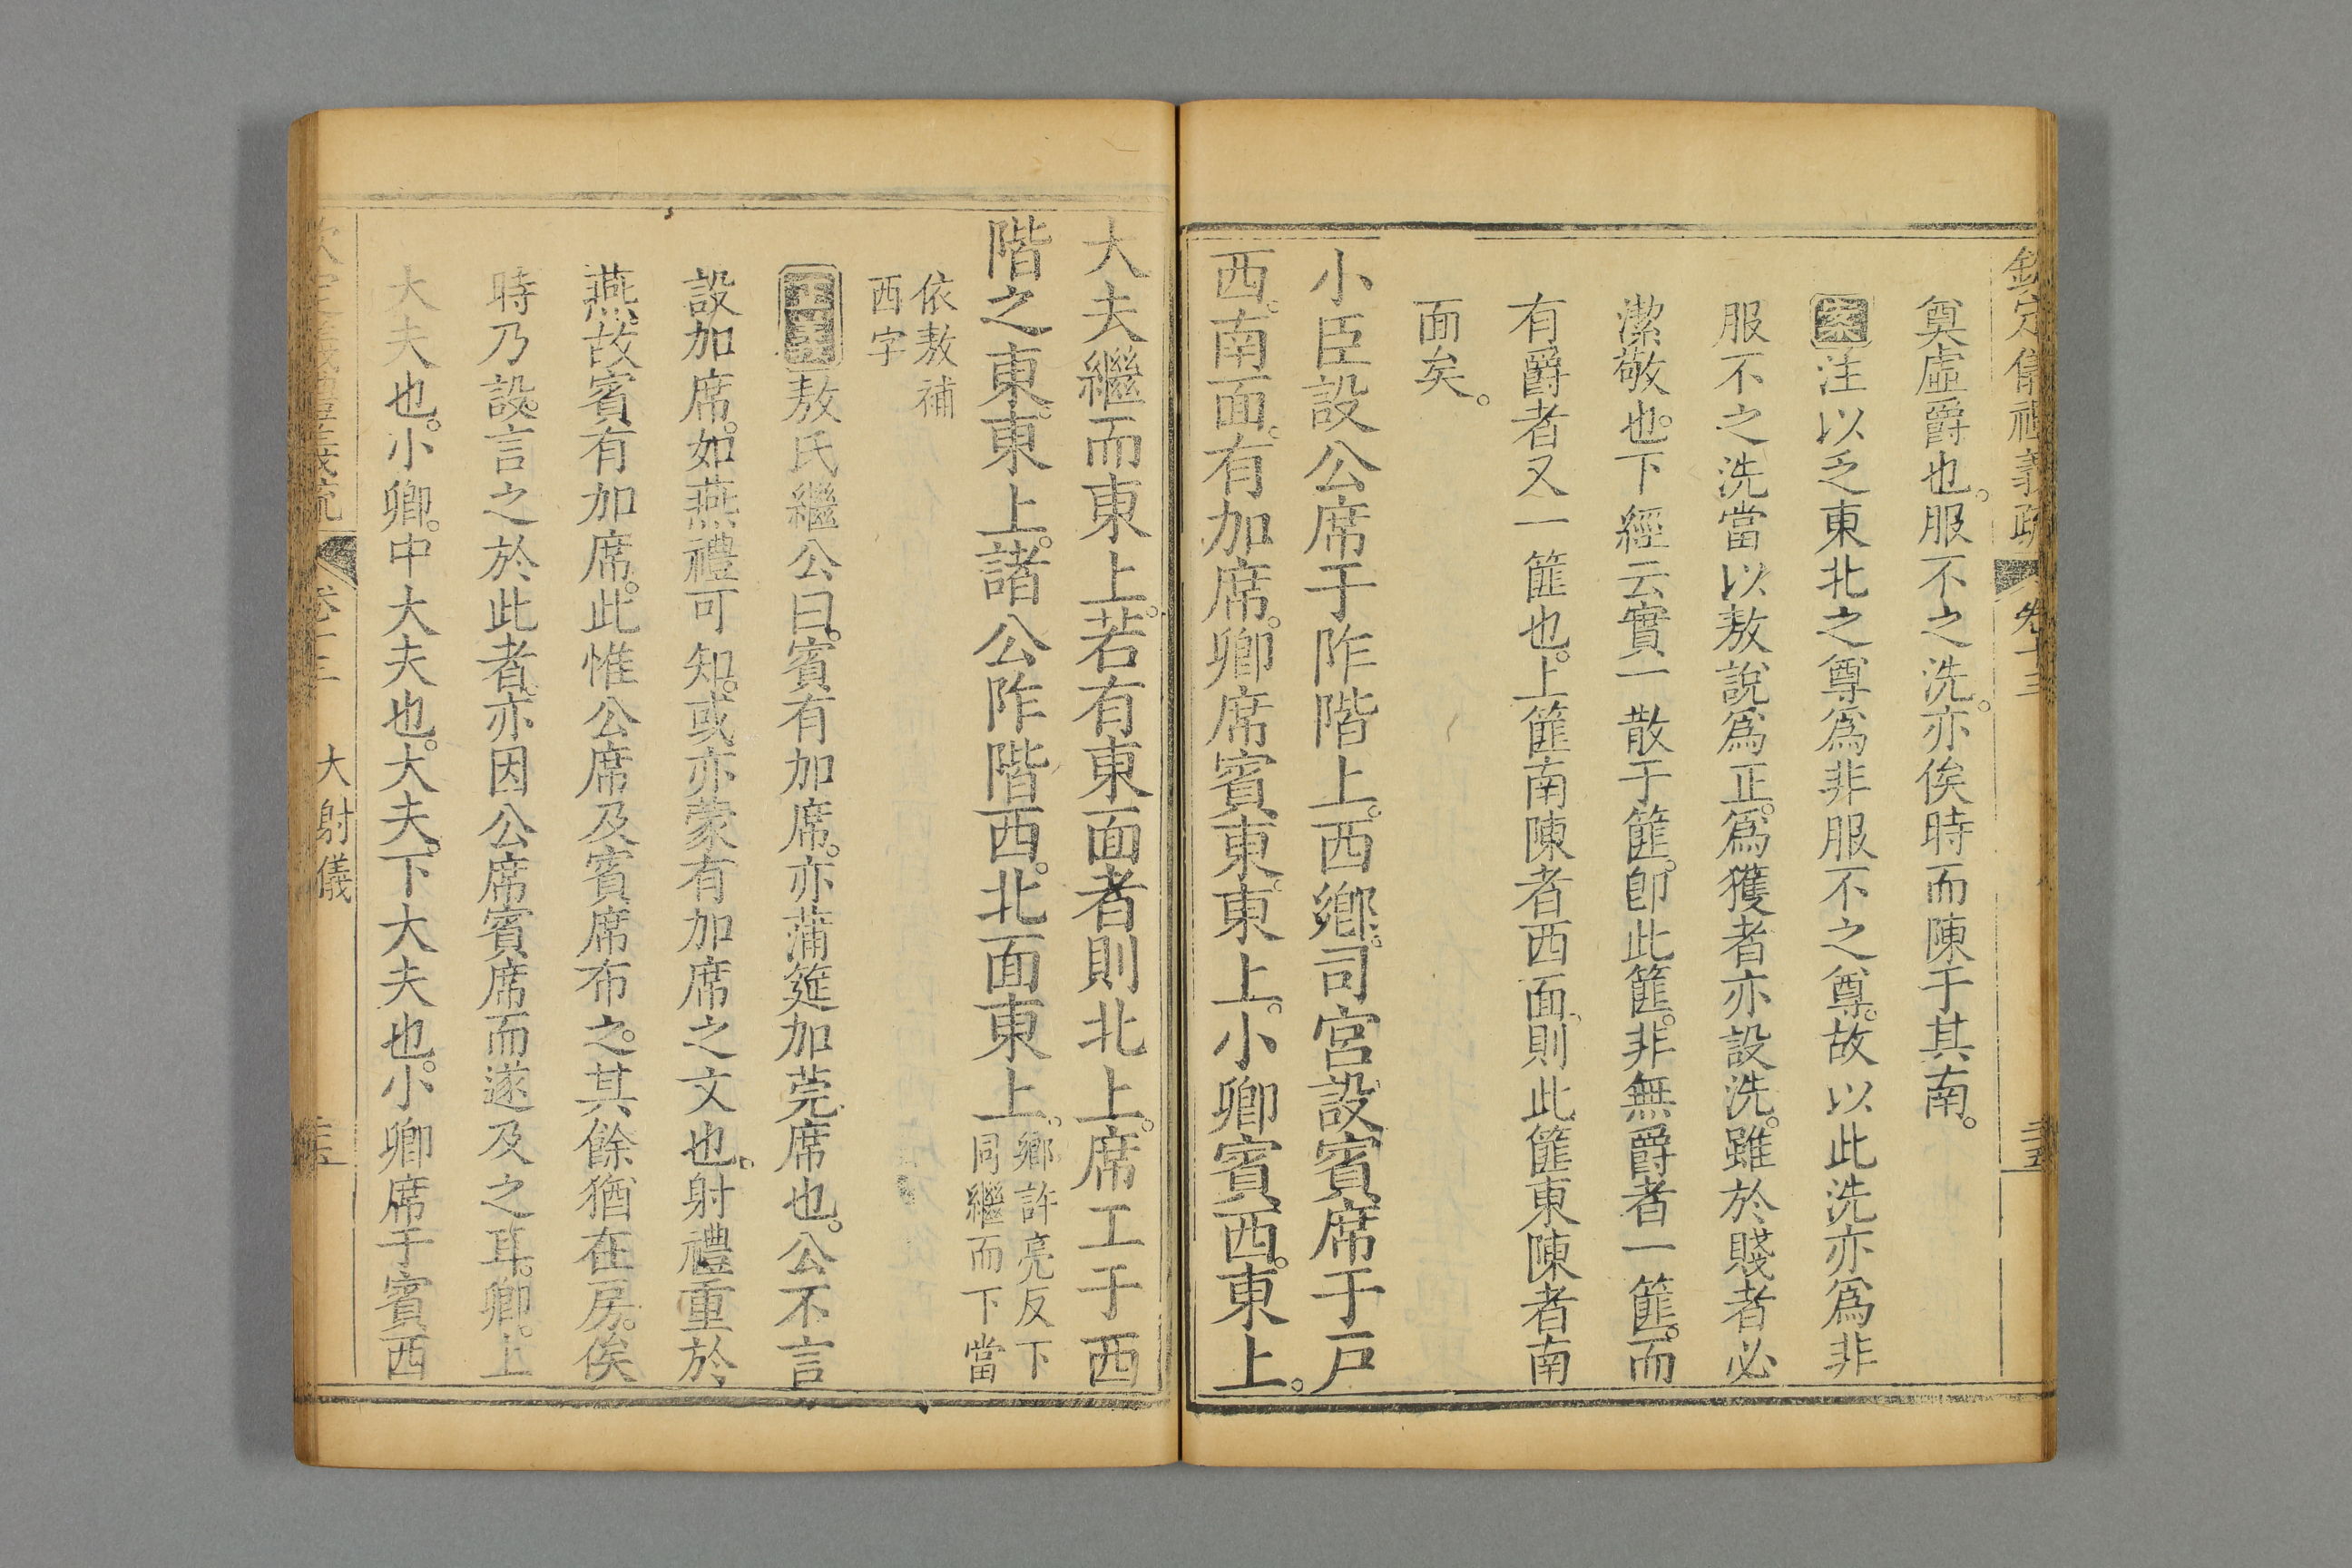 欽定儀禮義疏 卷十三 三十五
奠虛爵也。服不之洗。亦俟時而陳于其南。
案注以乏東北之尊爲非服不之尊。故以此洗亦爲非
服不之洗。當以敖說爲正。爲獲者亦設洗。雖於賤者必
潔敬也。下經云實一散于篚。卽此篚。非無爵者一篚。而
有爵者又一篚也。上篚南陳者西面、則此篚東陳者南
面矣。
小臣設公席于阼階上。西鄉。司宮設賓席于戶
西。南面。有加席。卿席賓東。東上。小卿賓西。東上。
大夫繼而東上。若有東面者則北上。席工于西
階之東。東上。諸公阼階西。北面東上。鄉許亮反下
同繼而下當
依敖補
西字
敖氏繼公曰。賓有加席。亦蒲筵加莞席也。公不言
設加席。如燕禮可知。或亦蒙有加席之文也。射禮重於
燕。故賓有加席。此惟公席及賓席布之。其餘猶在房。俟
時乃設。言之於此者。亦因公席賓席而遂及之耳。卿。上
大夫也。小卿。中大夫也。大夫。下大夫也。小卿席于賓西
欽定儀禮義疏 卷十三 大射儀